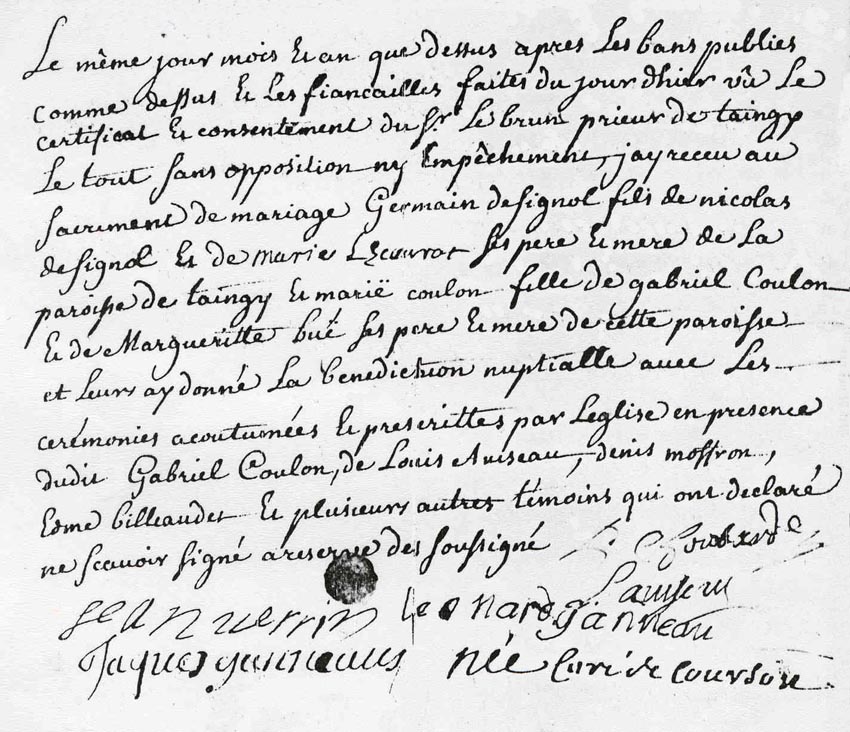 Le même jour mois Et an que dessus apres Les bans publies
comme dessus Et Les fiancailles faites du jour dhier vû Le
certificat Et consentement du Sr. Le brun prieur de taingy
Le tout sans opposition ny Empêchement, jay receu au
sacrement de mariage Germain designol fils de nicolas
designol Et de marie Lécouvrat ses pere Et mere de La
paroisse de taingy Et marië coulon fille de gabriel Coulon
Et de Margueritte buë ses pere Et mere de cette paroisse
et Leurs ay donné La benediction nuptialle avec Les
cerémonies acoutumées Et prescrittes par Leglise en presence
dudit Gabriel Coulon, de Louis Auiseau, denis moffron,
Edme billeaudet Et plusieurs autres témoins qui ont declaré
ne scavoir signé a reserve des soussigné
Jean verrin Leonard ganneau
Jaques ganneaus née Curé de Courson